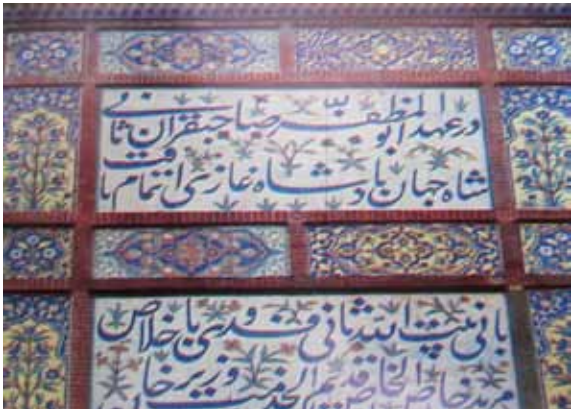 در عهد ابو المظفر صاحبقران ثانی
شاه جهان بادشاه غازی اتمام یافت
بانی بیت الله ثانی فدوی با خلاص
مرید خاص الخاص قدیم الخدمت وزیر خا